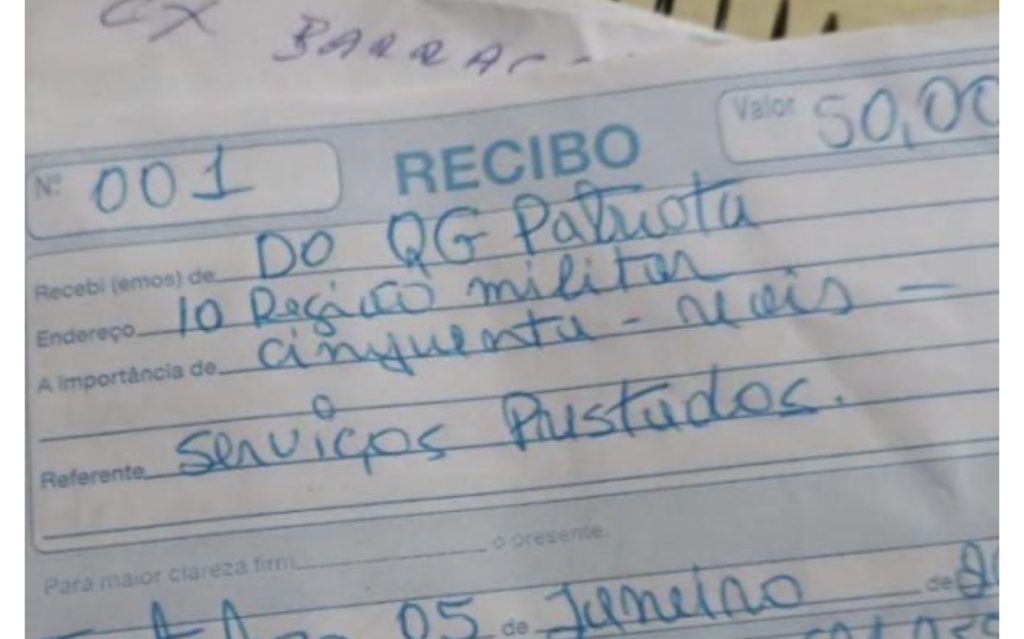 CX BARRAC
Nº 001 RECIBO Valor 50,00
Recebi (emos) de DO QG Patriota
Endereço 10 Região militar
A importância de cinquenta - reais -
Referente serviços Prestados.
Para maior clareza firm o presente.
05 de Janeiro de